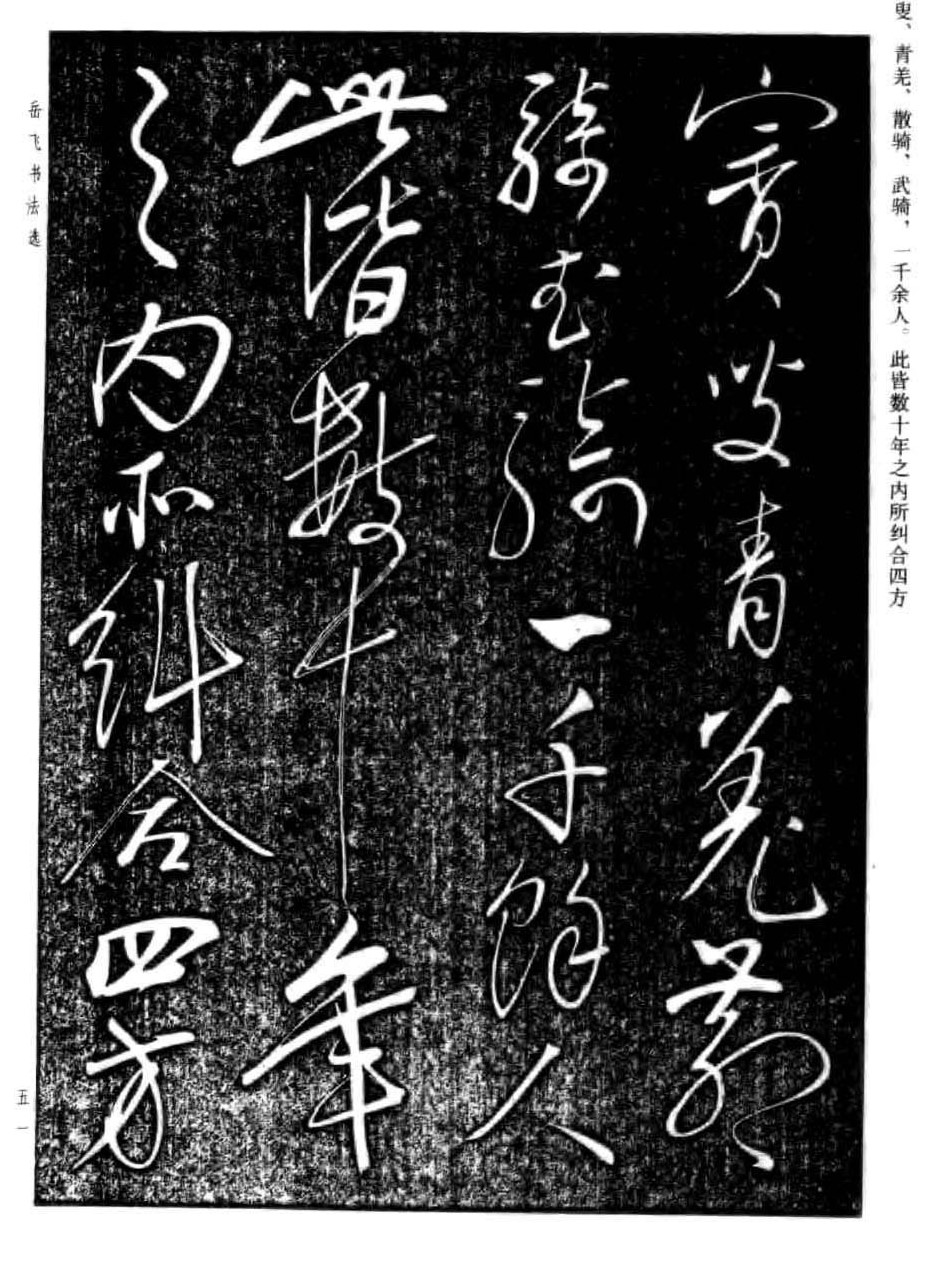 叟、青羌、散骑、武骑，一千余人。此皆数十年之内所纠合四方
賨叟青羌散
騎武騎一千餘人
此皆數十年
之内所糾合四方
岳飞书法选
五一